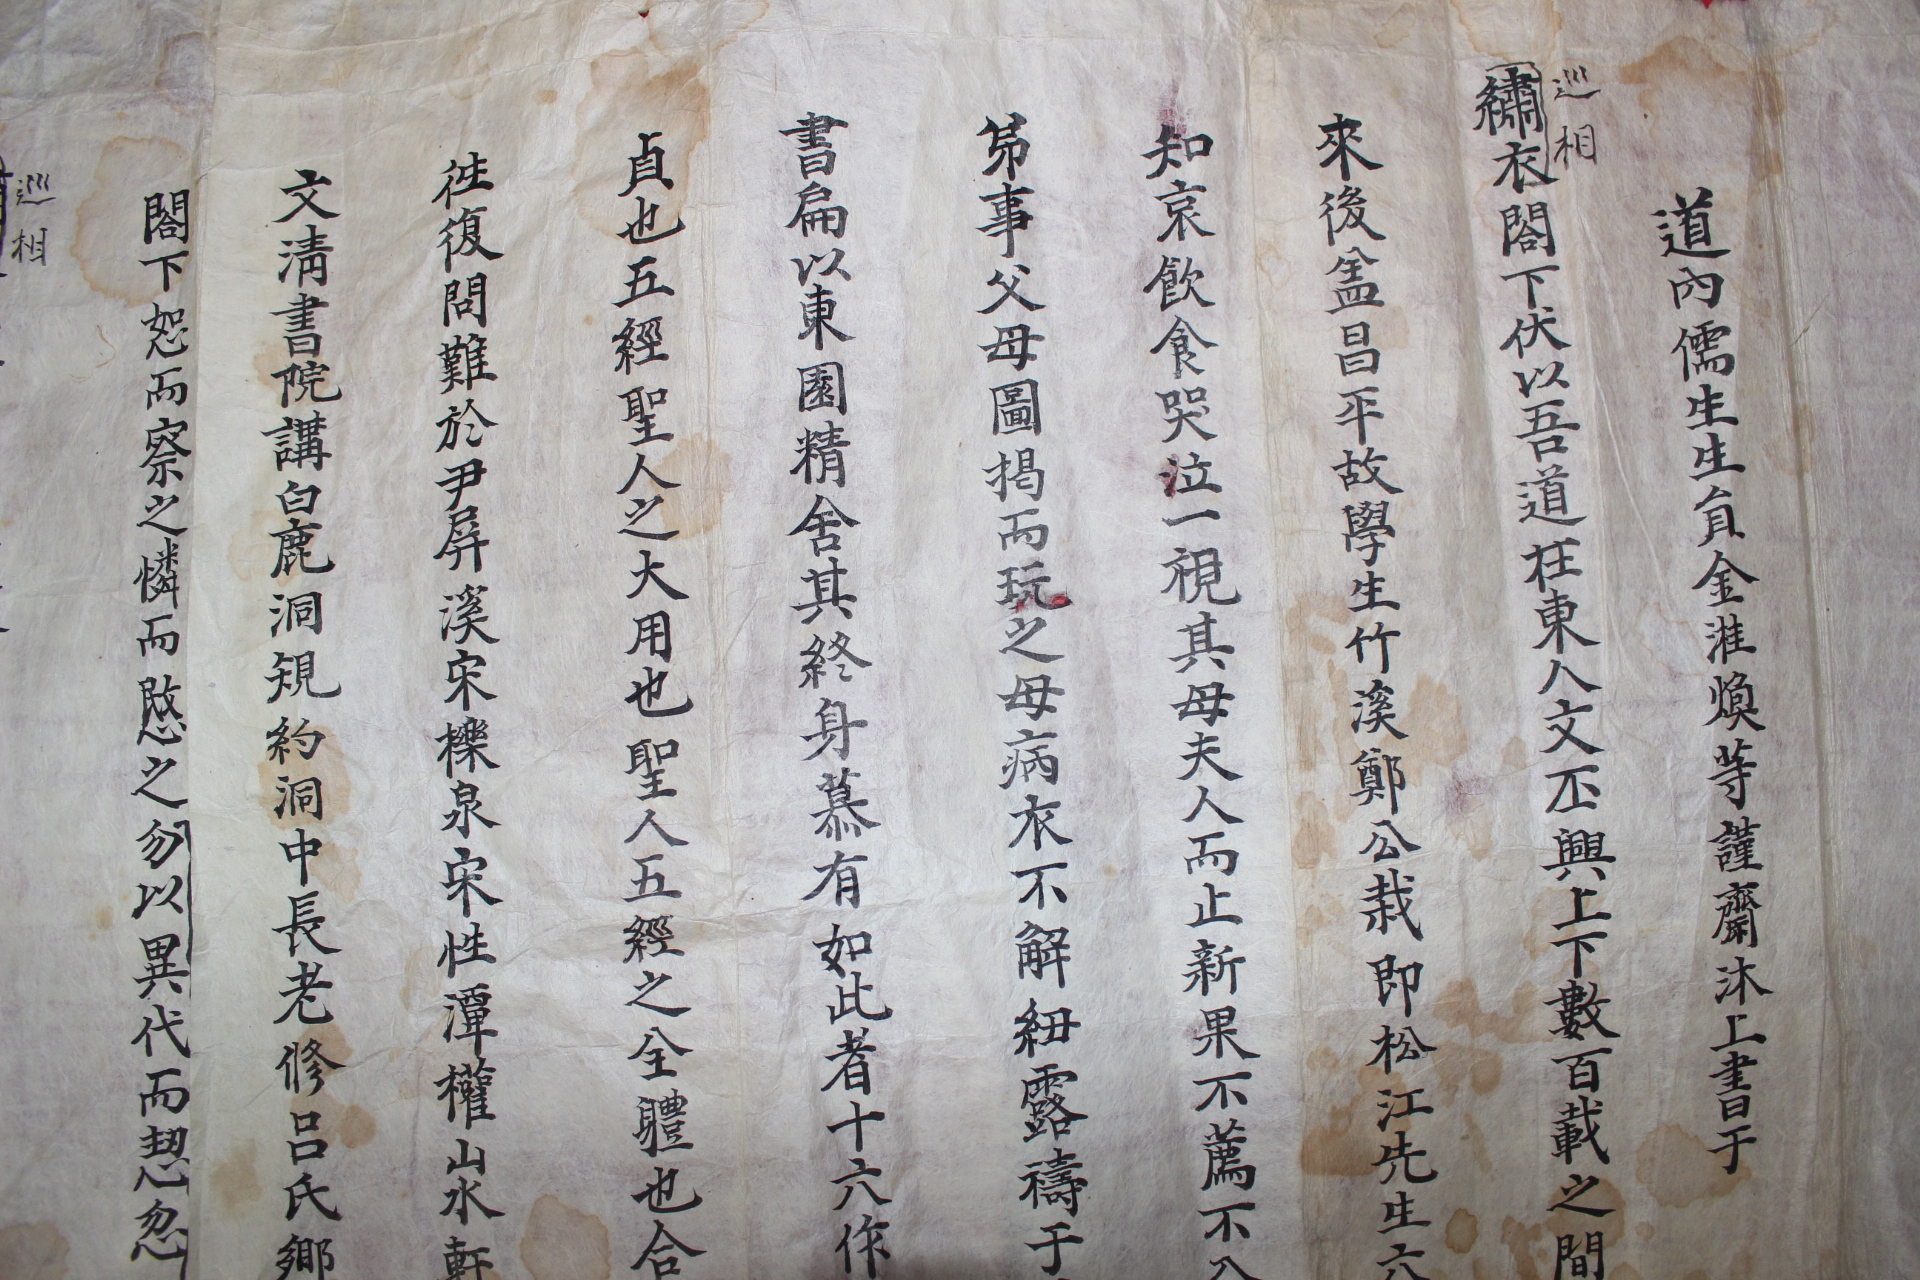 道內儒生生員金漼煥等謹齋沐上書于
巡相
繡衣閤下伏以吾道在東人文丕興上下數百載之間
來後孟昌平故學生竹溪鄭公栽即松江先生六
知哀飮食哭泣一視其母夫人而止新果不薦不入
弟事父母圖揭而玩之母病衣不解紐露禱于
書扁以東園精舍其終身慕有如此者十六作
貞也五經聖人之大用也聖人五經之全體也合
徃復問難於尹屛溪宋櫟泉宋性潭權山水軒
文淸書院講白鹿洞規約洞中長老修呂氏鄕
閤下恕而察之憐而愍之勿以異代而恝忽
巡相